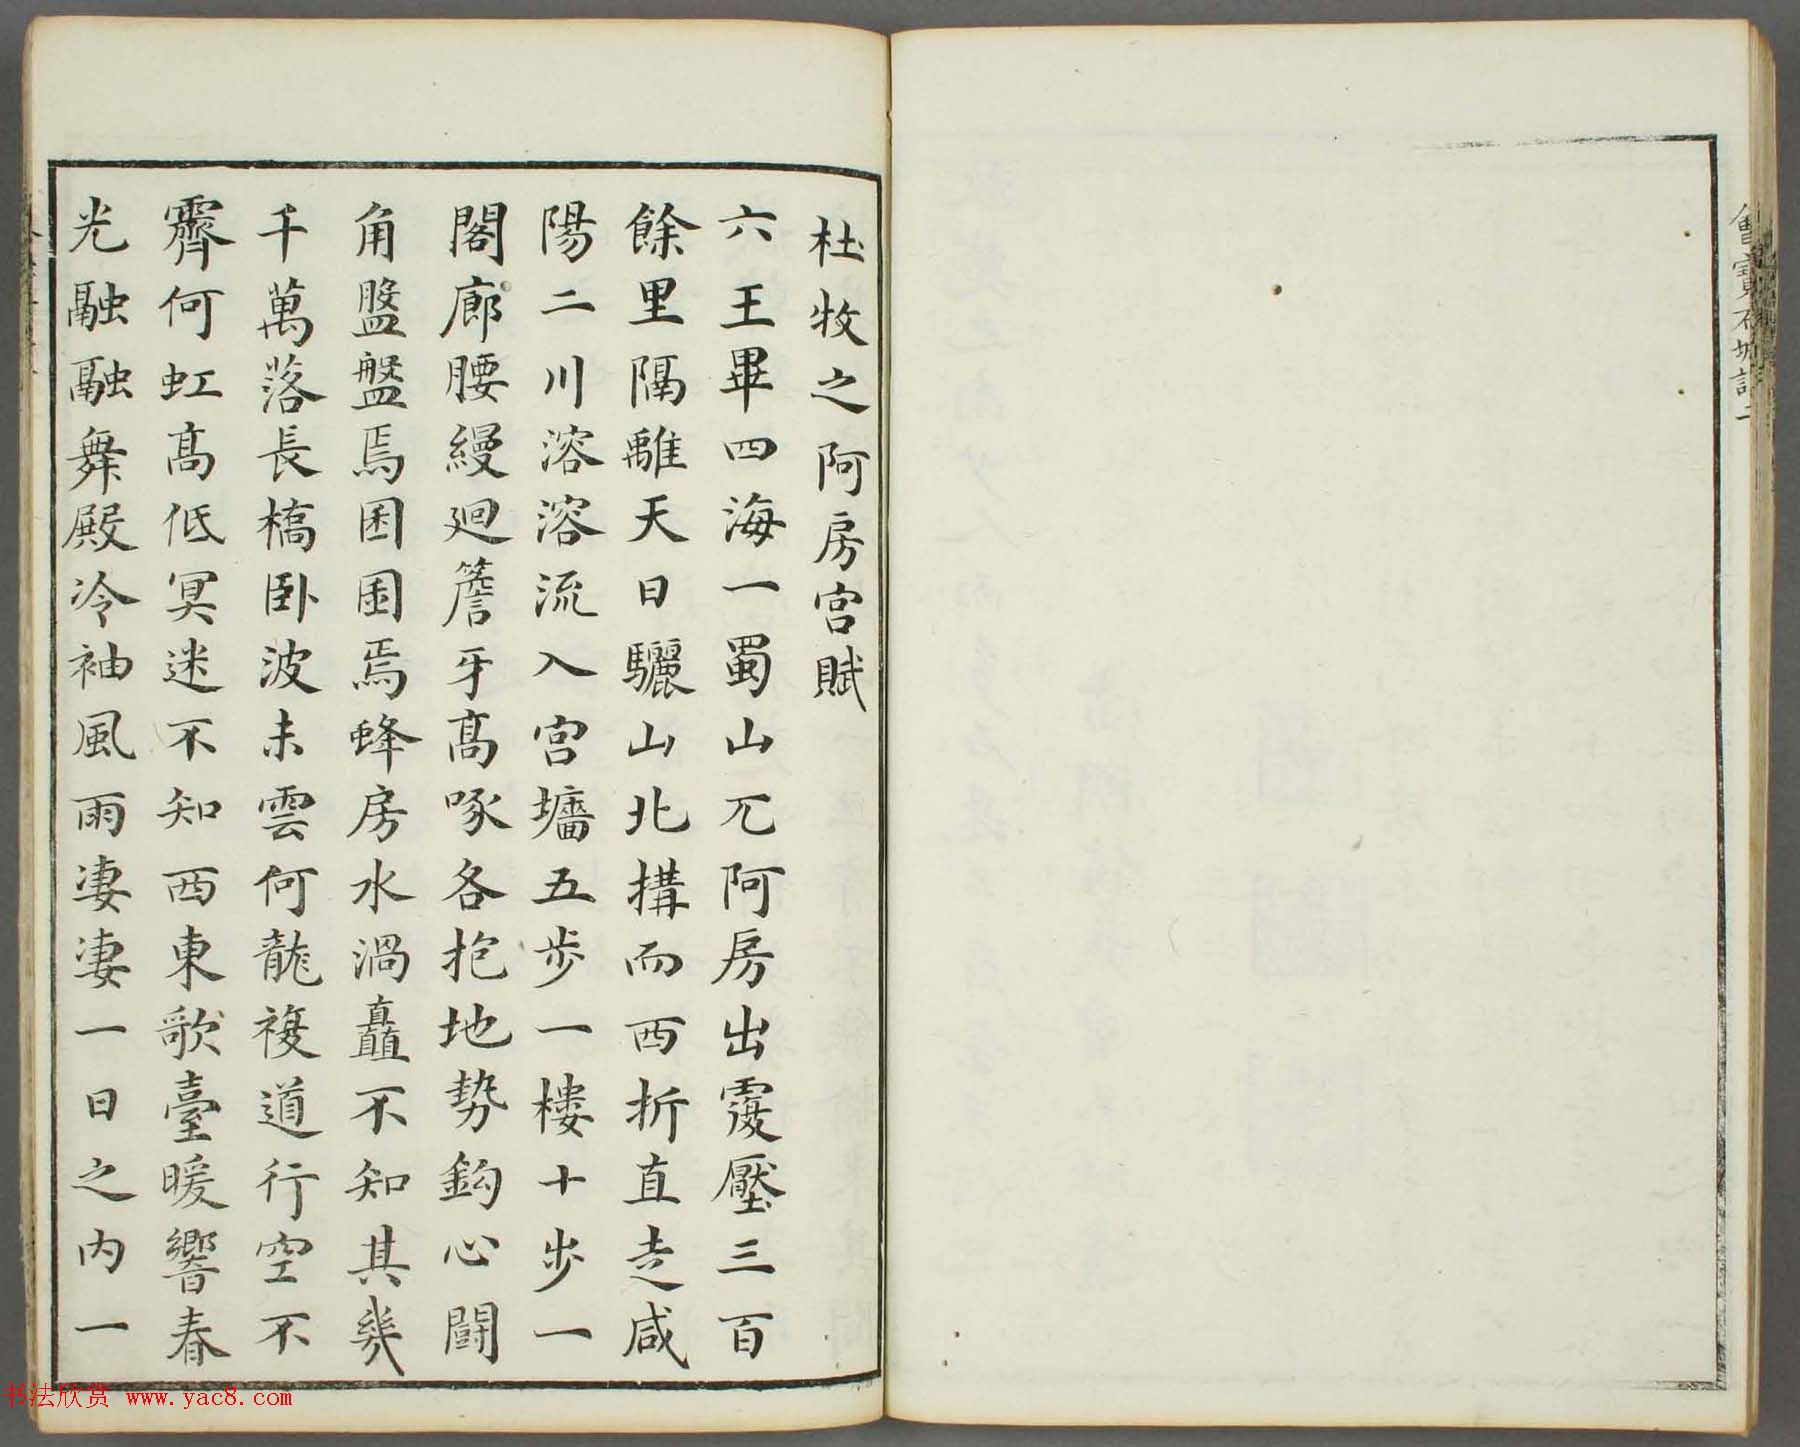 杜牧之阿房宮賦
六王畢四海一蜀山兀阿房出覆壓三百
餘里隔離天日驪山北搆而西折直走咸
陽二川溶溶流入宮墻五步一樓十步一
閣廊腰縵廻簷牙髙啄各抱地勢鈎心鬪
角盤盤焉囷囷焉蜂房水渦矗不知其幾
千萬落長橋臥波未雲何龍複道行空不
霽何虹髙低冥迷不知西東歌臺暖響春
光融融舞殿冷袖風雨凄凄一日之內一
书法欣赏 www.yac8.com